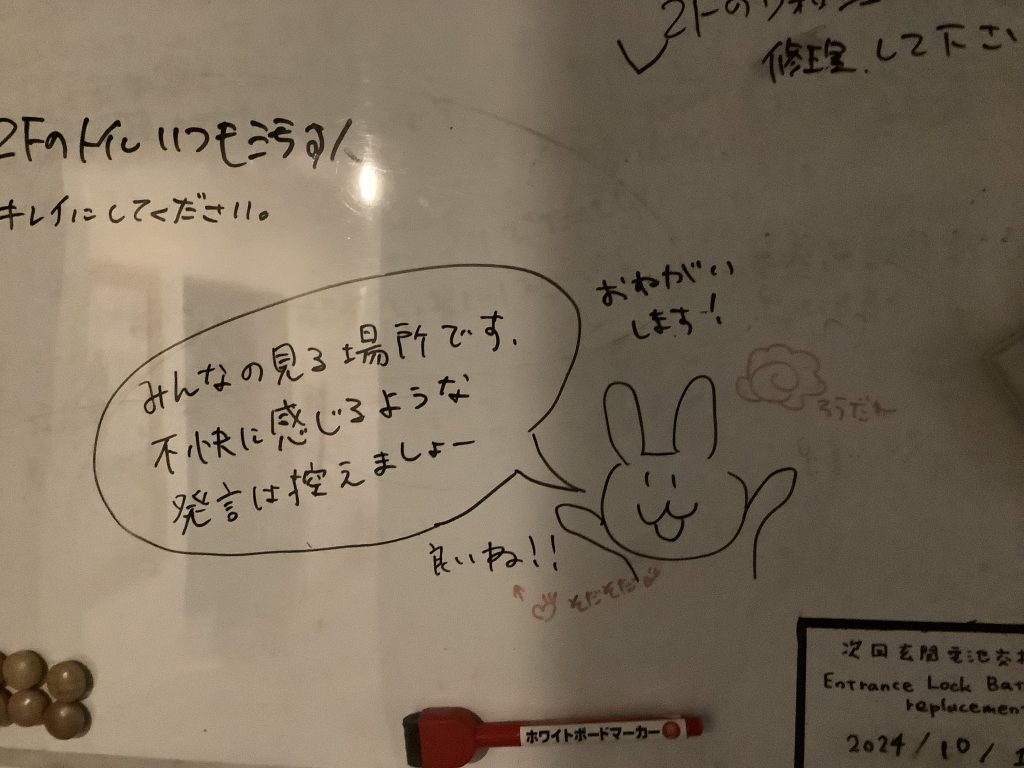 2Fの
修理して下さい
2Fのトイレいつも汚い
キレイにしてください。
おねがい
しますー!
みんなの見る場所です.
不快に感じるような
発言は控えましょー
そうだね
良いね!!
そだそだ
次回玄関電池交換
Entrance Lock Bat
replacement
ホワイトボードマーカー
2024/10/1